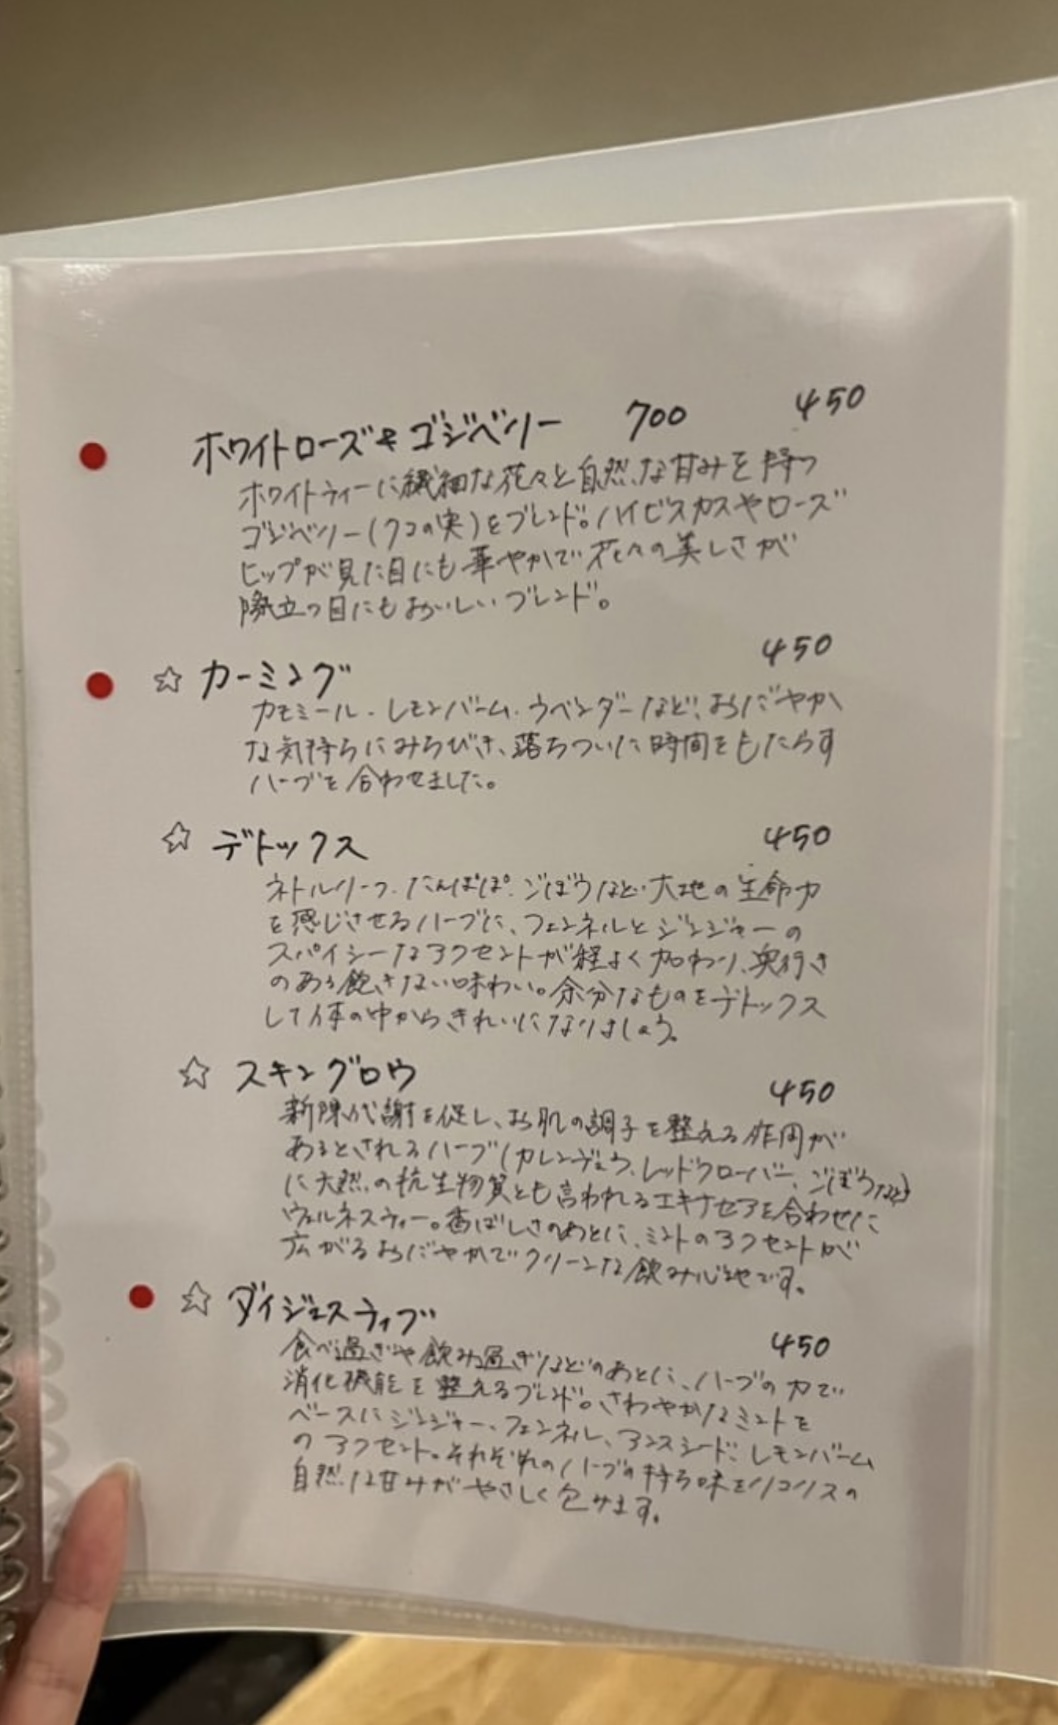 ホワイトローズ&ゴジベリー 700 450
ホワイトティーに繊細な花々と自然な甘みを持つ
ゴジベリー(クコの実)をブレンド。ハイビスカスやローズ
ヒップが見た目にも華やかで花々の美しさが
際立つ目にもおいしいブレンド。
☆ カーミング 450
カモミール・レモンバーム・ラベンダーなど、おだやか
な気持ちにみちびき、落ちついた時間をもたらす
ハーブを合わせました。
☆ デトックス 450
ネトルリーフ・たんぽぽ・ごぼうなど大地の生命力
を感じさせるハーブに、フェンネルとジンジャーの
スパイシーなアクセントが程よく加わり、奥行き
のある飽きない味わい。余分なものをデトックス
して体の中からきれいになりましょう。
☆ スキングロウ 450
新陳代謝を促し、お肌の調子を整える作用が
あるとされるハーブ(カレンデュラ、レッドクローバー、ごぼうなど)
に天然の抗生物質とも言われるエキナセアを合わせた
ウェルネスティー。香ばしさのあとに、ミントのアクセントが
広がるおだやかでクリーンな飲み心地です。
☆ ダイジェスティブ 450
食べ過ぎや飲み過ぎなどのあとに、ハーブの力で
消化機能を整えるブレンド。さわやかなミントを
ベースにジンジャー、フェンネル、アニスシード、レモンバーム
のアクセント。それぞれのハーブの持ち味をリコリスの
自然な甘みがやさしく包みます。